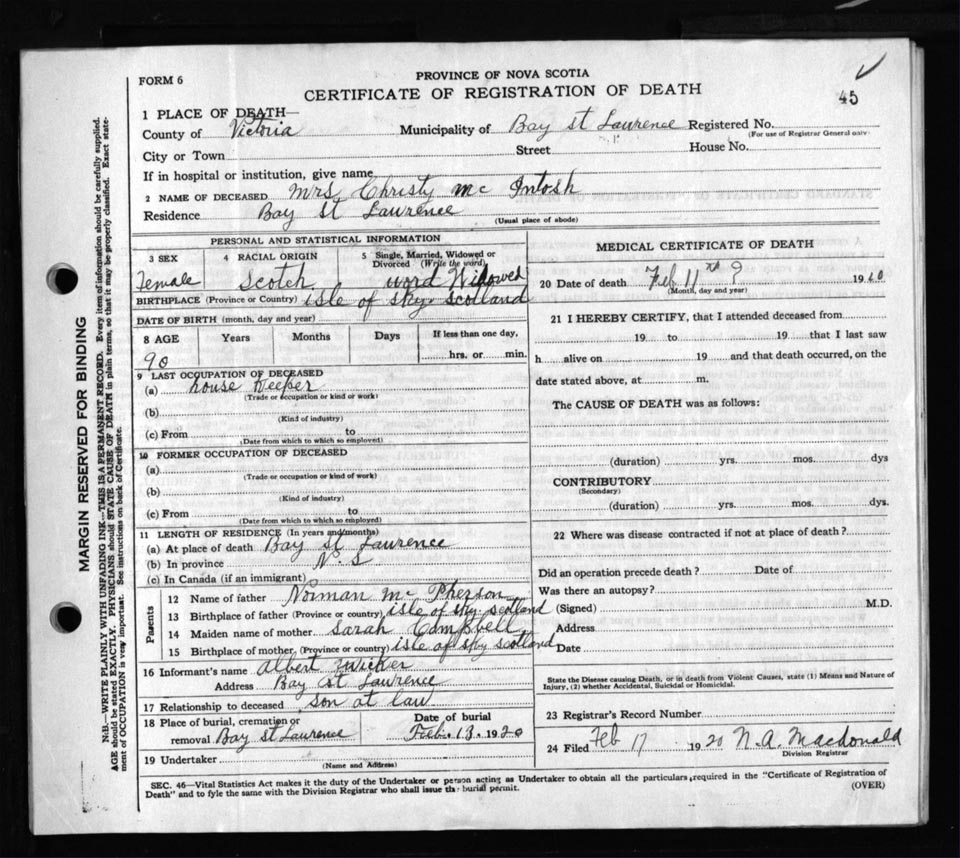 FORM 6
PROVINCE OF NOVA SCOTIA
CERTIFICATE OF REGISTRATION OF DEATH
45
1 PLACE OF DEATH—
County of Victoria Municipality of Bay St Lawrence Registered No.
(For use of Registrar General only)
City or Town Street House No.
If in hospital or institution, give name
2 NAME OF DECEASED Mrs Christy Mc Intosh
Residence Bay St Lawrence
(Usual place of abode)
PERSONAL AND STATISTICAL INFORMATION
3 SEX 4 RACIAL ORIGIN 5 Single, Married, Widowed or Divorced (Write the word)
Female Scotch word Widowed
BIRTHPLACE (Province or Country) isle of sky. Scotland
DATE OF BIRTH (month, day and year)
8 AGE Years Months Days If less than one day,
hrs. or min.
90
9 LAST OCCUPATION OF DECEASED
(a) house Keeper
(Trade or occupation or kind or work)
(b)
(Kind of industry)
(c) From to
(Date from which to which so employed)
10 FORMER OCCUPATION OF DECEASED
(a)
(Trade or occupation or kind or work)
(b)
(Kind of industry)
(c) From to
(Date from which to which so employed)
11 LENGTH OF RESIDENCE (In years and months)
(a) At place of death Bay St Lawrence
(b) In province N. S
(c) In Canada (if an immigrant)
Parents
12 Name of father Norman Mc Pherson
13 Birthplace of father (Province or country) isle of sky. Scotland
14 Maiden name of mother Sarah Campbell
15 Birthplace of mother (Province or country) isle of sky Scotland
16 Informant's name Albert Zwicker
Address Bay St Lawrence
17 Relationship to deceased son at law
18 Place of burial, cremation or removal Bay St Lawrence
Date of burial Feb. 13. 1920
19 Undertaker
(Name and Address)
MEDICAL CERTIFICATE OF DEATH
20 Date of death Feb 11 1920
(Month, day and year)
21 I HEREBY CERTIFY, that I attended deceased from
19 to 19 that I last saw
h alive on 19 and that death occurred, on the
date stated above, at m.
The CAUSE OF DEATH was as follows:
(duration) yrs. mos. dys
CONTRIBUTORY
(Secondary)
(duration) yrs. mos. dys.
22 Where was disease contracted if not at place of death?
Did an operation precede death? Date of
Was there an autopsy?
(Signed) M.D.
Address
Date
State the Disease causing Death, or in death from Violent Causes, state (1) Means and Nature of
Injury, (2) whether Accidental, Suicidal or Homicidal.
23 Registrar's Record Number
24 Filed Feb 17 1920 N. A. Macdonald
Division Registrar
SEC. 46—Vital Statistics Act makes it the duty of the Undertaker or person acting as Undertaker to obtain all the particulars required in the "Certificate of Registration of
Death" and to fyle the same with the Division Registrar who shall issue the burial permit.
(OVER)
MARGIN RESERVED FOR BINDING
N.B.—WRITE PLAINLY WITH UNFADING INK—THIS IS A PERMANENT RECORD. Every item of information should be carefully supplied.
AGE should be stated EXACTLY. PHYSICIANS should STATE CAUSE OF DEATH in plain terms, so that it may be properly classified. Exact state-
ment of OCCUPATION is very important. See instructions on back of Certificate.